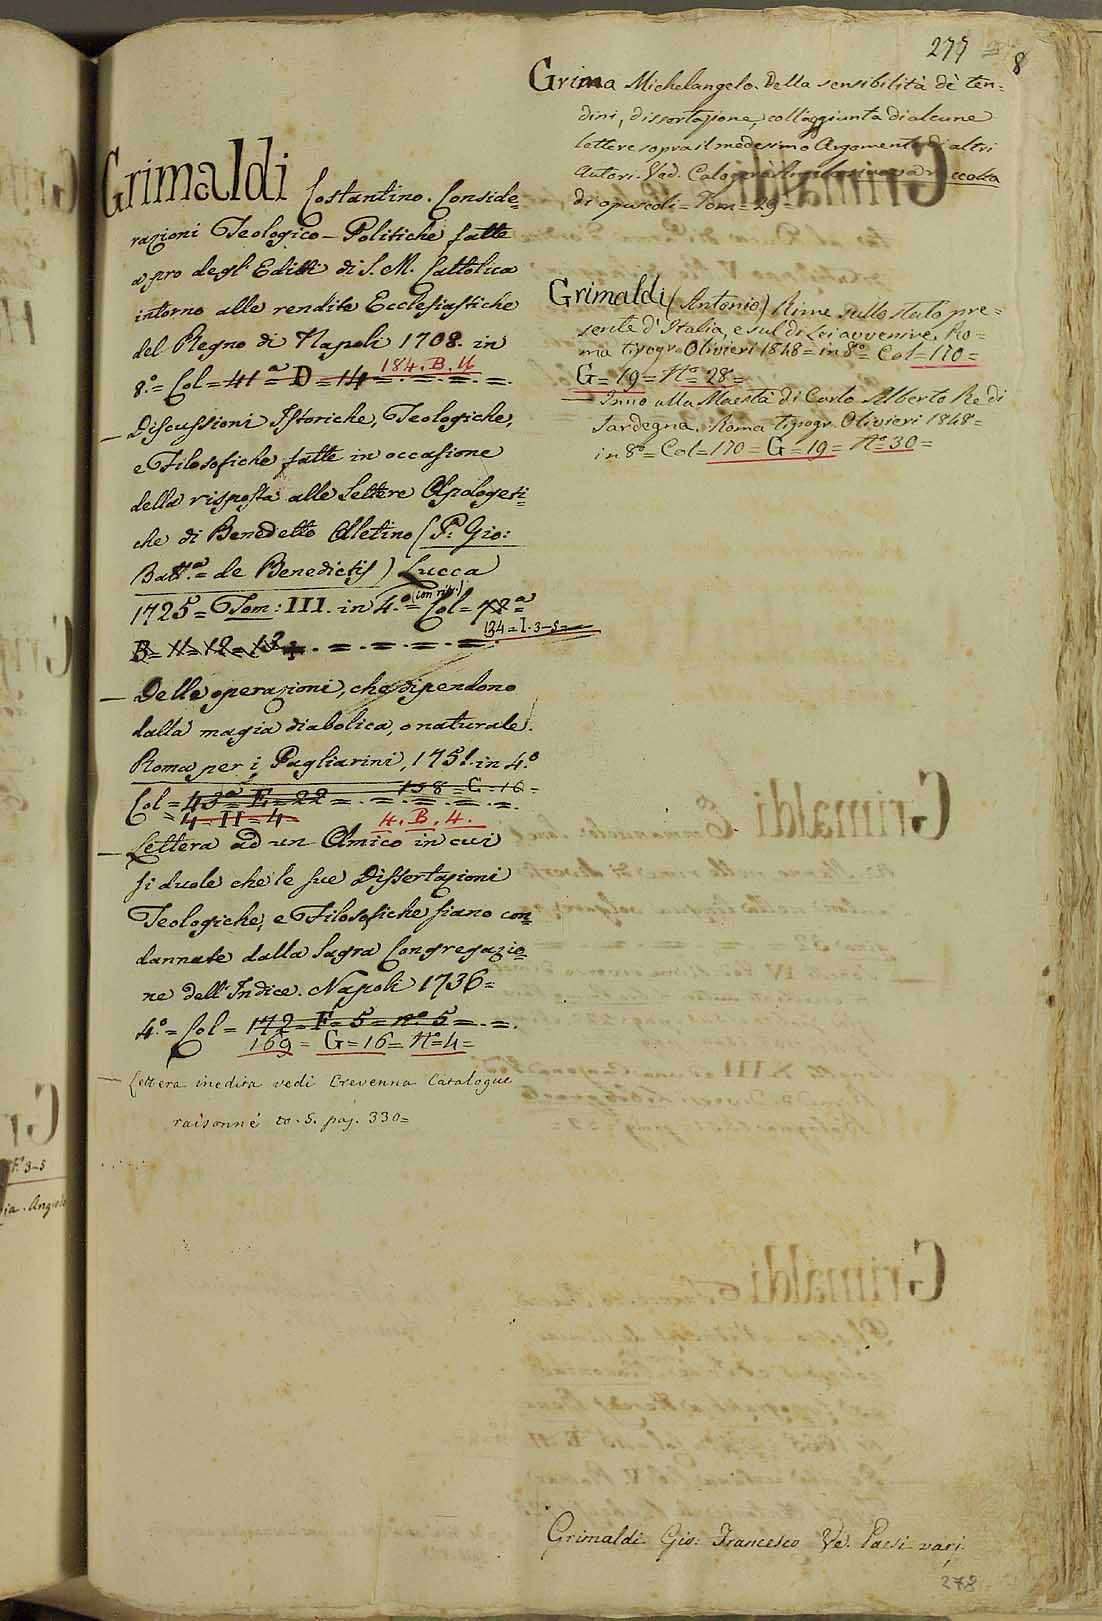 277
8
Grimaldi Costantino. Conside=
razioni Teologico-Politiche fatte
a pro degl' Editti di S. M. Cattolica
intorno alle rendite Ecclesiastiche
del Regno di Napoli 1708. in
8.º = Col = 41ª = D = 14 = . = . = . =
184. B. 16
— Discussioni Istoriche, Teologiche,
e Filosofiche fatte in occasione
della risposta alle Lettere Apologeti=
che di Benedetto Aletino (P. Gio:
Batt.ª = de Benedictis) Lucca
1725 = Tom: III. in 4.º = (con ritr.) Col = 42ª =
134 = I. 3-5 =
B = 11 = 12 = 13 = . = . = . = . =
— Delle operazioni, che dipendono
dalla magia diabolica, o naturale.
Roma per i Pagliarini, 1751. in 4.º
138 = C. 16 =
Col = 43ª = E = 22 = . = . = . = . =
= 4 = II = 4 4. B. 4.
— Lettera ad un Amico in cui
si duole che le sue Dissertazioni
Teologiche, e Filosofiche siano con=
dannate dalla Sagra Congregazio=
ne dell' Indice. Napoli 1736 =
4.º = Col = 172 = F = 5 = nº. 5 = . = .
169 = G = 16 = Nº = 4 =
— Lettera inedita vedi Crevenna Catalogue
raisonné to. 5. pag. 330 =
Grima Michelangelo. Della sensibilità de' ten=
dini, dissertazione, coll'aggiunta di alcune
lettere sopra il medesimo Argomento di altri
Autori. Ved. Calogerà nuova raccolta
di opuscoli = Tom = 29 =
Grimaldi (Antonio) Rime sullo stato pre=
sente d'Italia, e sul di Lei avvenire. Ro=
ma tipogr. Olivieri 1848 = in 8º = Col = 170 =
G = 19 = Nº = 28 =
— Inno alla Maestà di Carlo Alberto Re di
Sardegna. Roma tipogr. Olivieri 1848 =
in 8º = Col = 170 = G = 19 = Nº = 30 =
Grimaldi Gio: Francesco Ve. Paesi varj
278